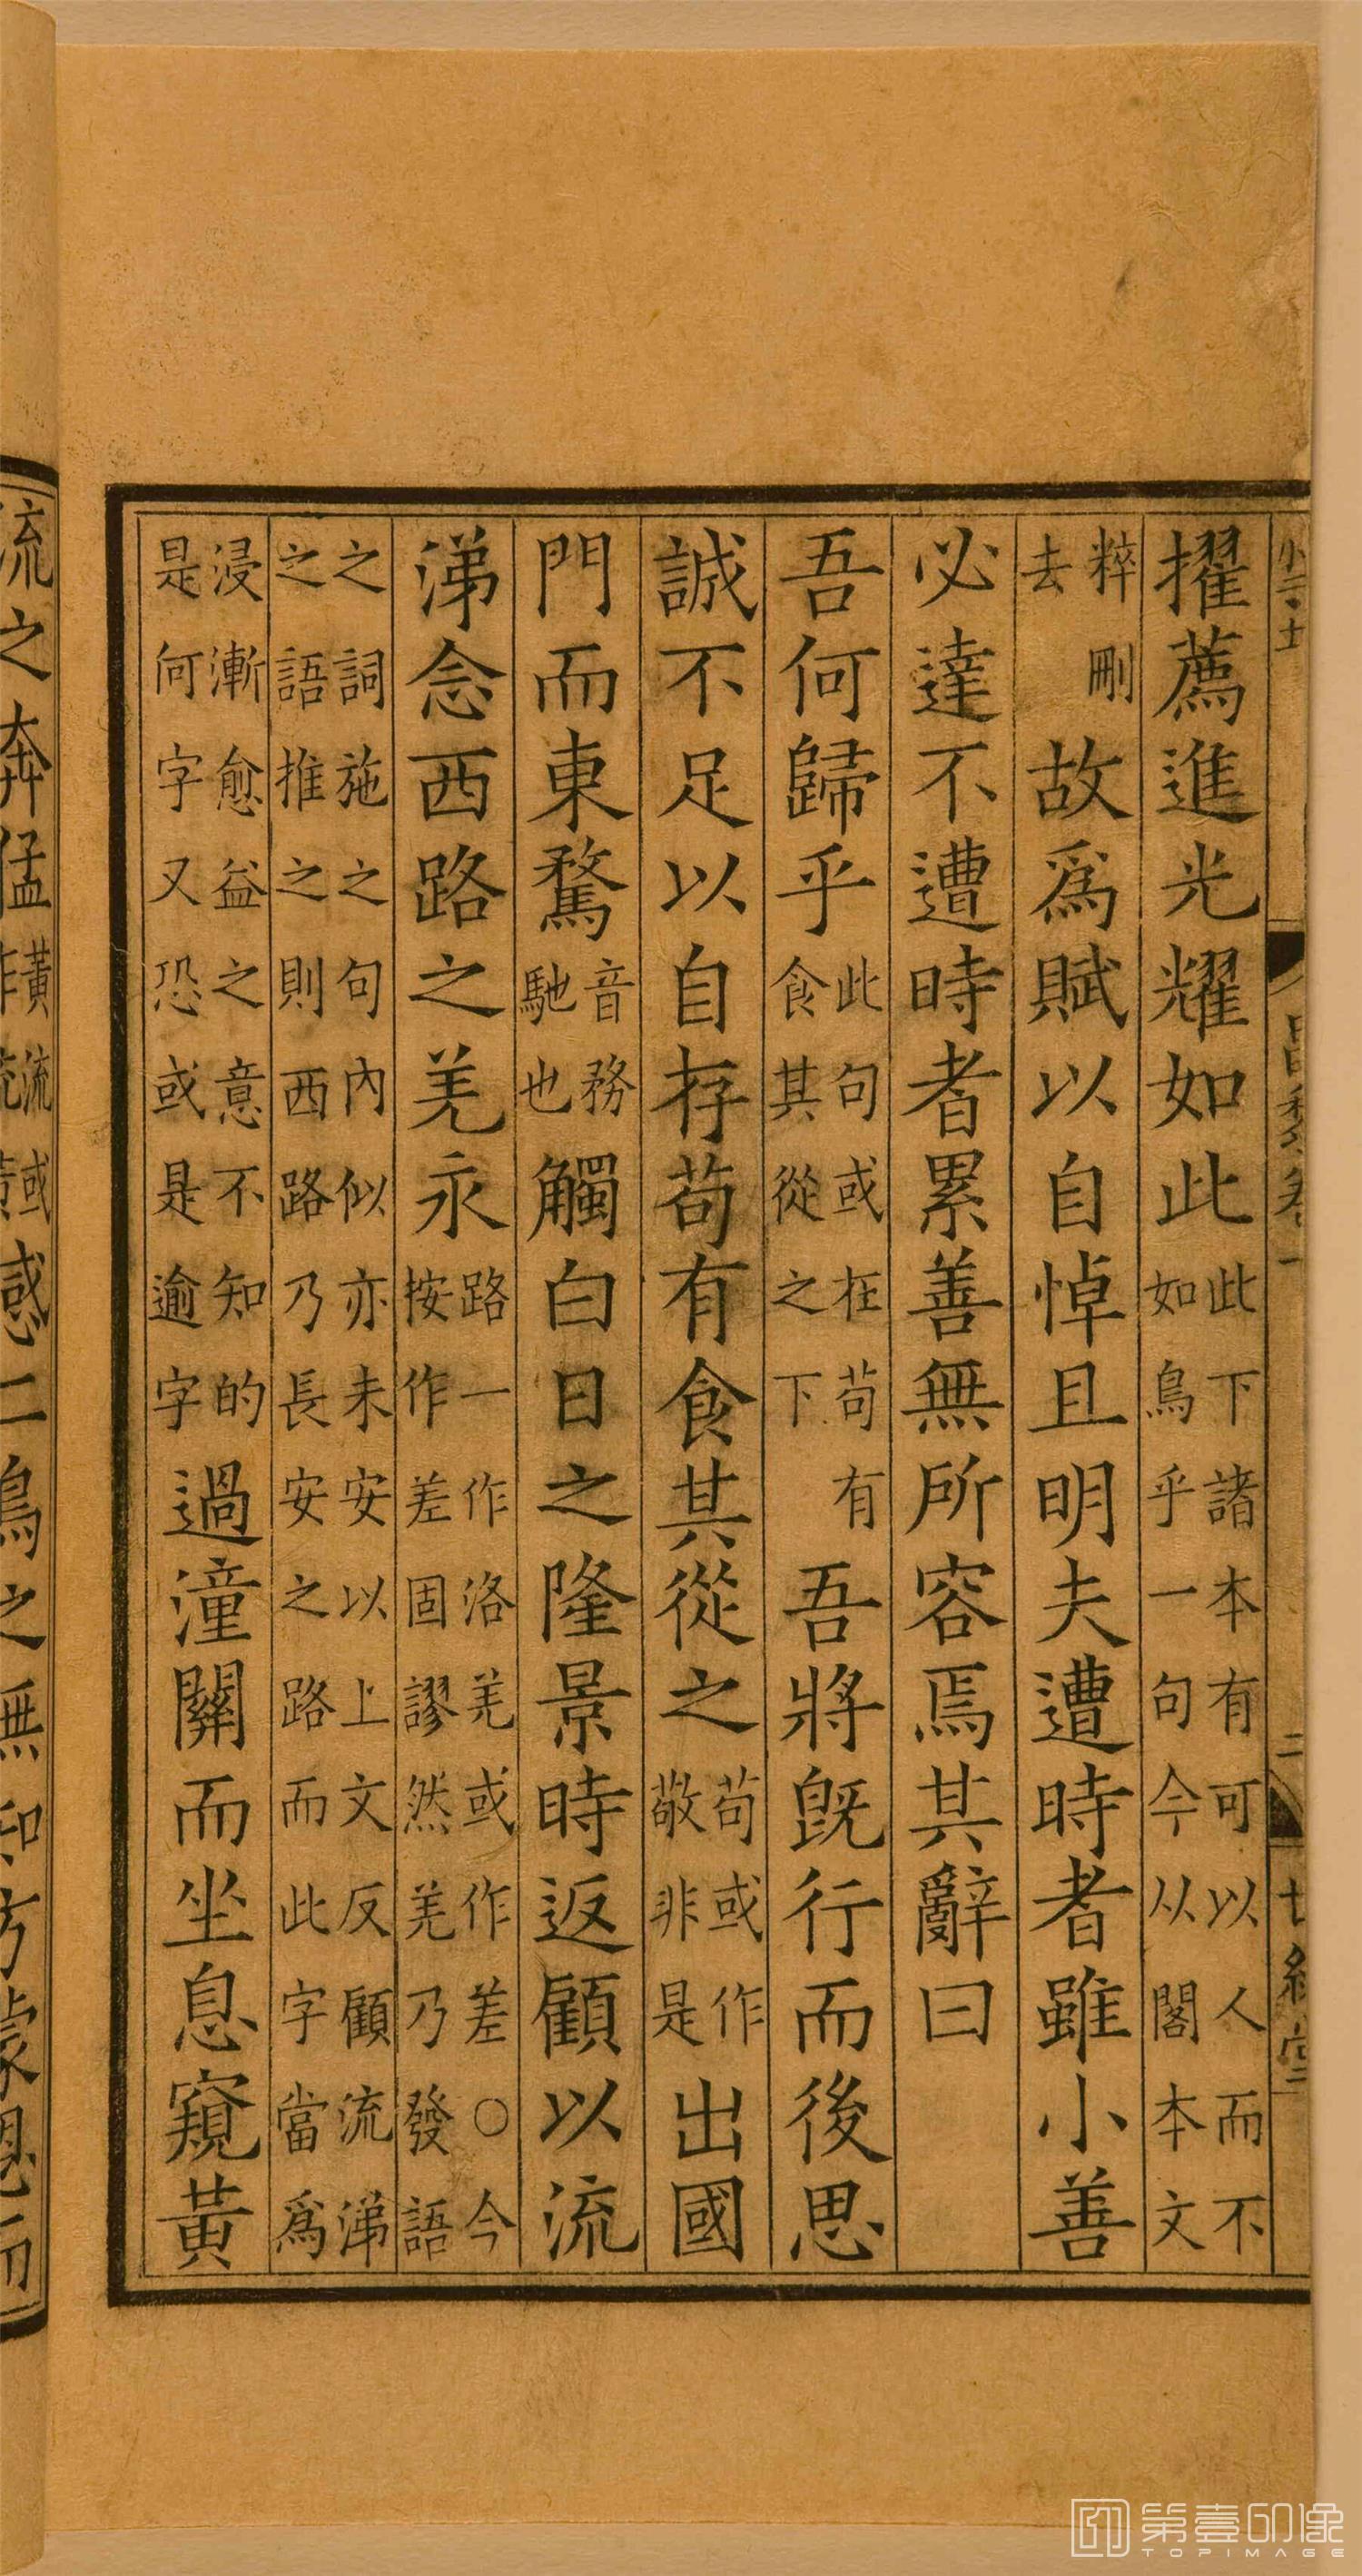 擢薦進光耀如此此下諸本有可以人而不如鳥乎一句今从閣本文
粹刪去故爲賦以自悼且明夫遭時者雖小善
必達不遭時者累善無所容焉其辭曰
吾何歸乎此句或在苟有食其從之下吾將旣行而後思
誠不足以自存苟有食其從之苟或作敬非是出國
門而東騖音務馳也觸白日之隆景時返顧以流
涕念西路之羌永路一作洛羌或作差〇今按作差固謬然羌乃發語
之詞施之句內似亦未安以上文反顧流涕之語推之則西路乃長安之路而此字當爲
浸漸愈益之意不知的是何字又恐或是逾字過潼關而坐息窺黃
流之奔猛
感二鳥之無知方蒙恩而
二
第壹印像
TOPIMAGE